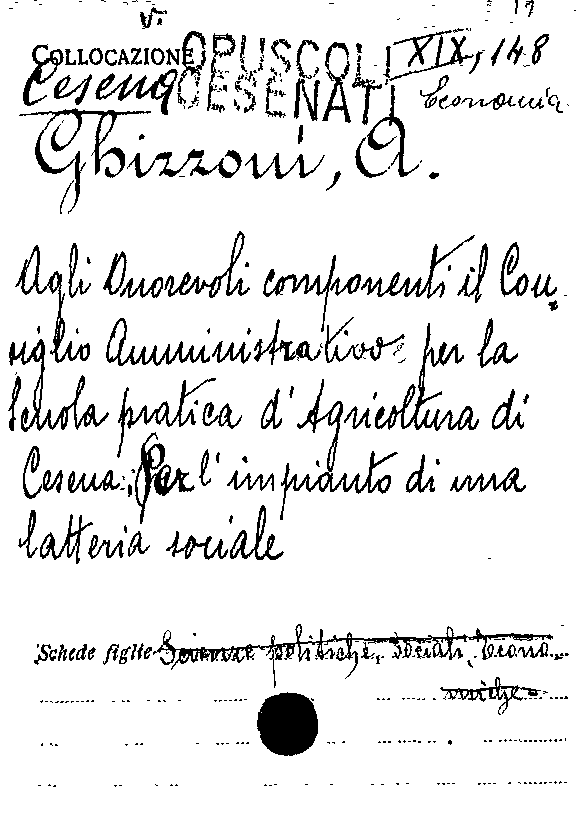 V.
COLLOCAZIONE OPUSCOLI XIX, 148
Cesena CESENATI Economia
Ghizzoni, A.
Agli Onorevoli componenti il Con-
siglio Amministrativo per la
Scuola pratica d'Agricoltura di
Cesena. Per l'impianto di una
latteria sociale
Schede figlie Scienze politiche, sociali, econo-
miche